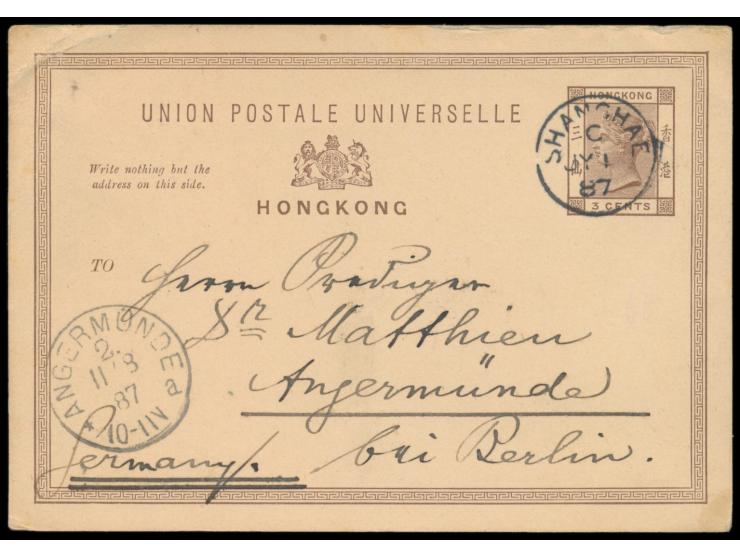 UNION POSTALE UNIVERSELLE
HONGKONG
香港
3 CENTS
SHANGHAE
C
JY 1
87
Write nothing but the
address on this side.
HONGKONG
TO
Herrn Prediger
Dr Matthieu
Angermünde
bei Berlin.
Germany.
* ANGERMÜNDE a
11 8
87
10-11N